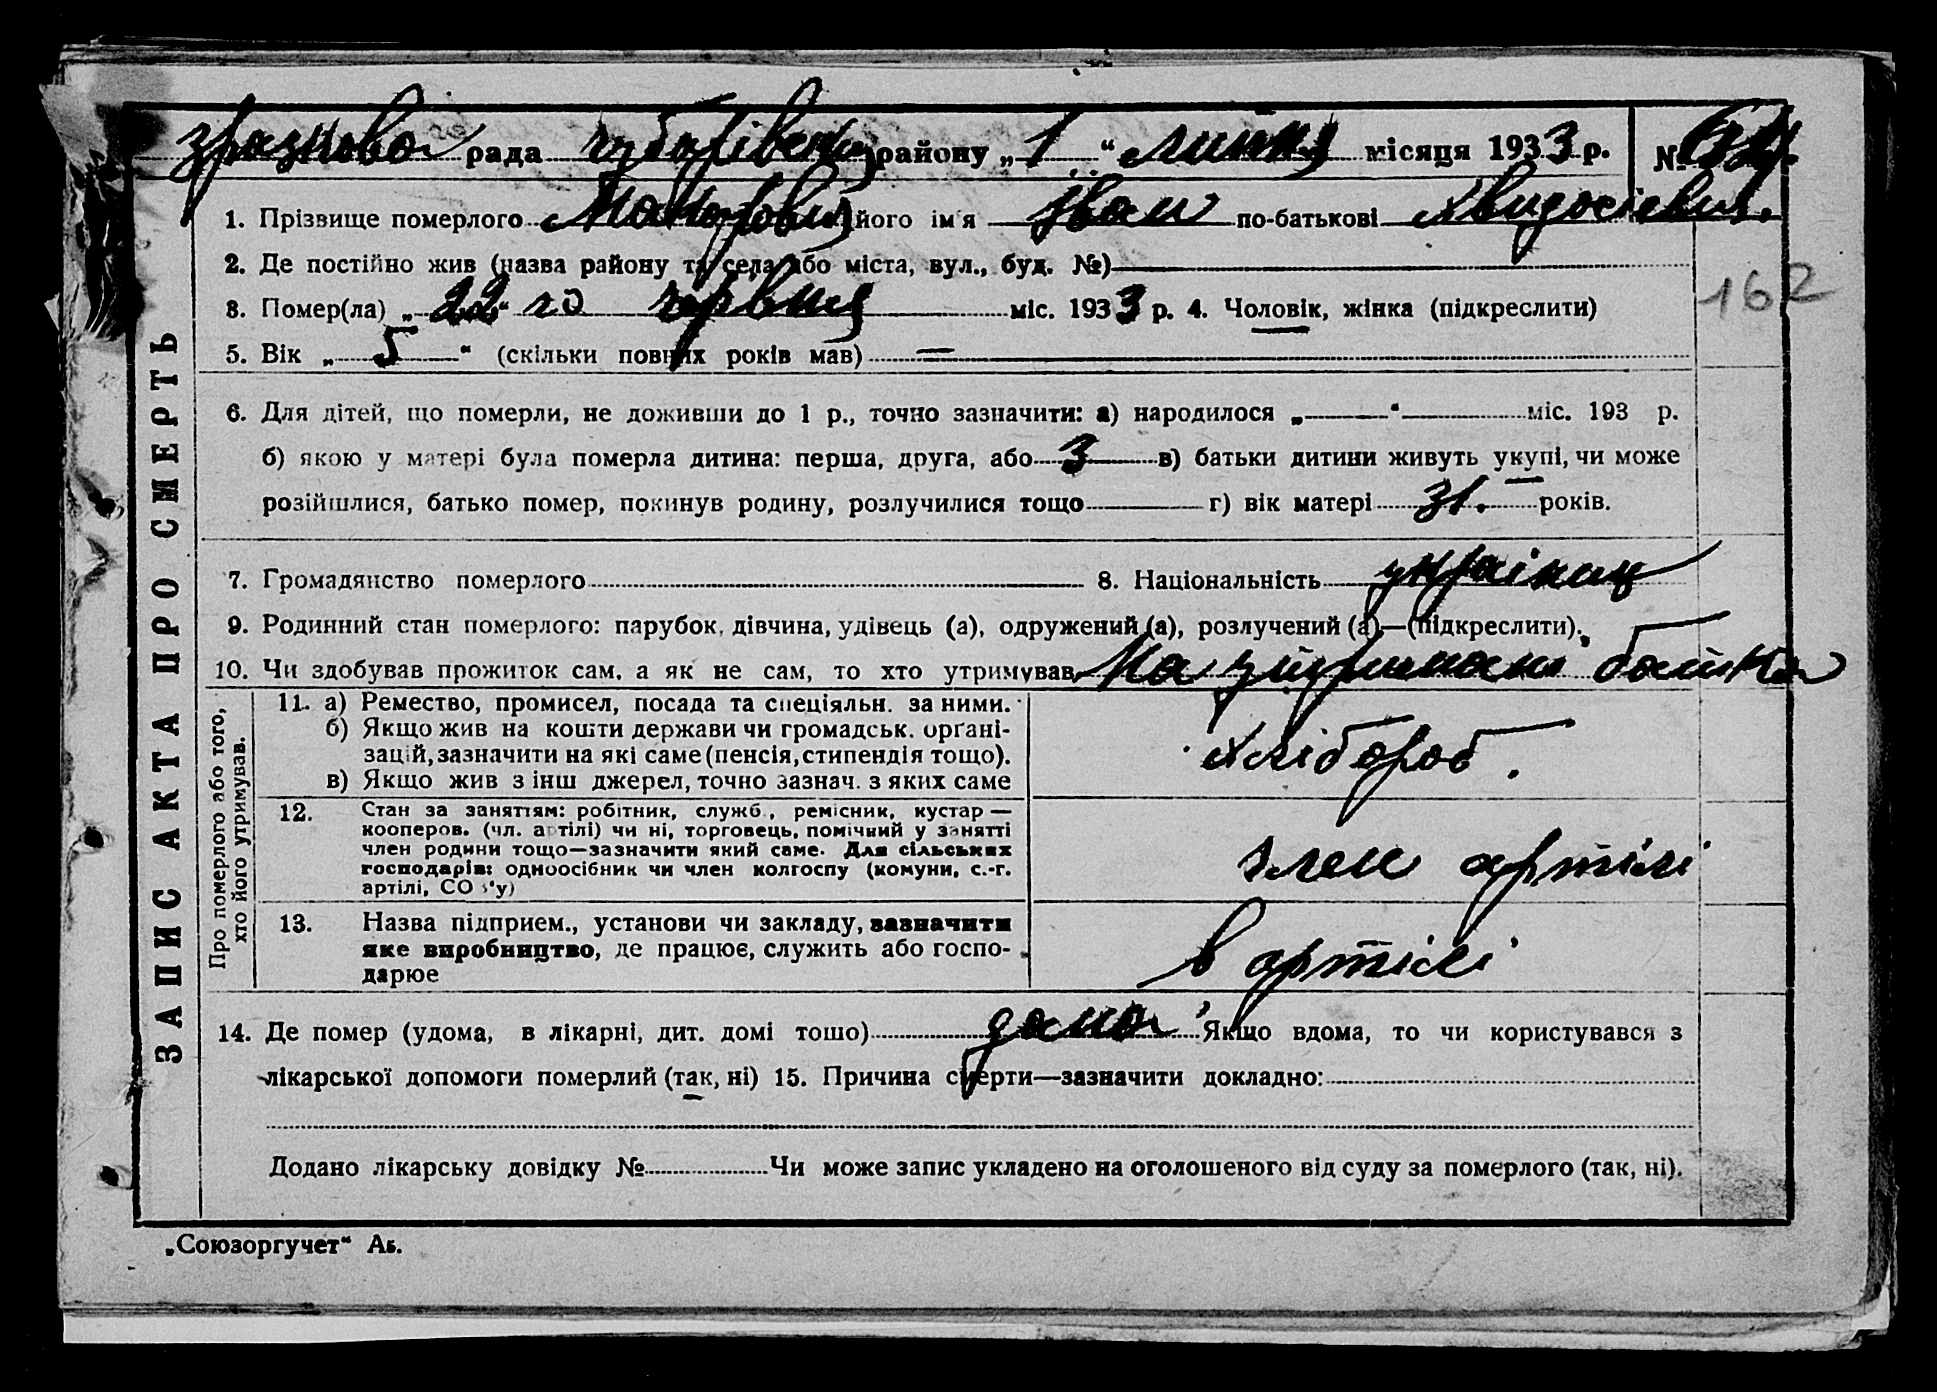 зразкова рада чубарівськ району „1“ липня місяця 1933 р. №
1. Прізвище померлого його ім'я Іван по-батькові
2. Де постійно жив (назва району та села або міста, вул., буд. №)
3. Помер(ла) „22“ го червня міс. 1933 р. 4. Чоловік, жінка (підкреслити)
5. Вік „5“ (скільки повних років мав) —
162
6. Для дітей, що померли, не доживши до 1 р., точно зазначити: а) народилося „—“ міс. 193 р.
б) якою у матері була померла дитина: перша, друга, або 3 в) батьки дитини живуть укупі, чи може
розійшлися, батько помер, покинув родину, розлучилися тощо г) вік матері 31. років.
7. Громадянство померлого 8. Національність українец
9. Родинний стан померлого: парубок, дівчина, удівець (а), одружений (а), розлучений (а)—(підкреслити).
10. Чи здобував прожиток сам, а як не сам, то хто утримував На утриманні батька
ЗАПИС АКТА ПРО СМЕРТЬ
Про померлого або того, хто його утримував.
11. а) Ремество, промисел, посада та спеціяльн. за ними.
б) Якщо жив на кошти держави чи громадськ. орґані-
зацій, зазначити на які саме (пенсія, стипендія тощо).
в) Якщо жив з інш джерел, точно зазнач. з яких саме
хлібороб.
12. Стан за заняттям: робітник, служб., ремісник, кустар —
кооперов. (чл. артілі) чи ні, торговець, помічний у занятті
член родини тощо—зазначити який саме. Для сільських
господарів: одноосібник чи член колгоспу (комуни, с.-г.
артілі, СОЗ'у)
член артілі
13. Назва підприєм., установи чи закладу, зазначити
яке виробництво, де працює, служить або госпо-
дарює
в артілі
14. Де помер (удома, в лікарні, дит. домі тошо) дома Якщо вдома, то чи користувався з
лікарської допомоги померлий (так, ні) 15. Причина смерти—зазначити докладно:
Додано лікарську довідку № Чи може запис укладено на оголошеного від суду за померлого (так, ні).
„Союзоргучет“ Аб.